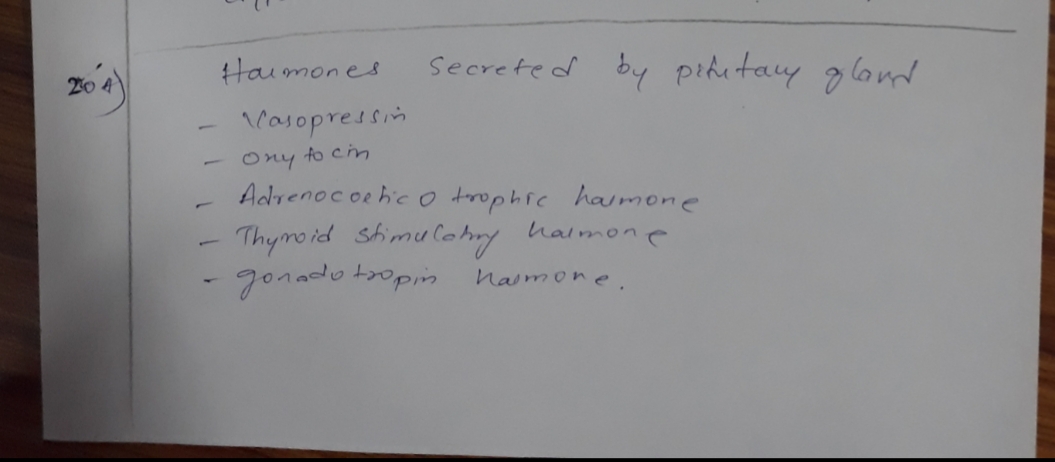 204) Harmones secreted by pitutary gland
- Vasopressin
- Oxytocin
- Adrenocorticotrophic harmone
- Thyroid stimulatry harmone
- gonadotropin harmone.